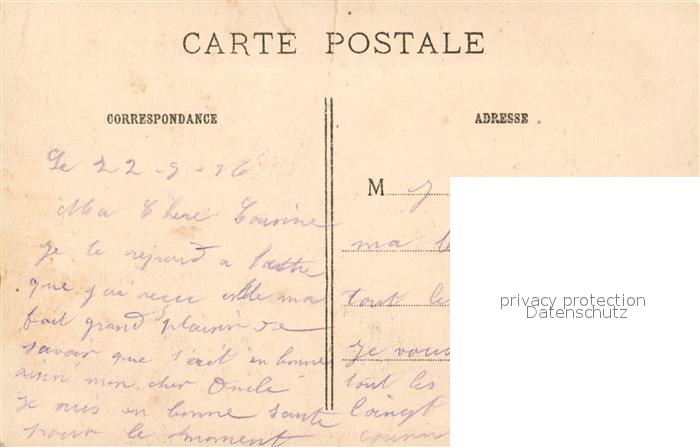 CARTE POSTALE
CORRESPONDANCE
ADRESSE
Le 22-9-16
Ma Chere Cousine
je te repond a lettre
que j'ai recu elle ma
fait grand plaisir de
savoir que en bonne
mon cher Oncle
je suis en bonne sante
pour le moment
M
ma
tout le
je vous
tout les
privacy protection
Datenschutz